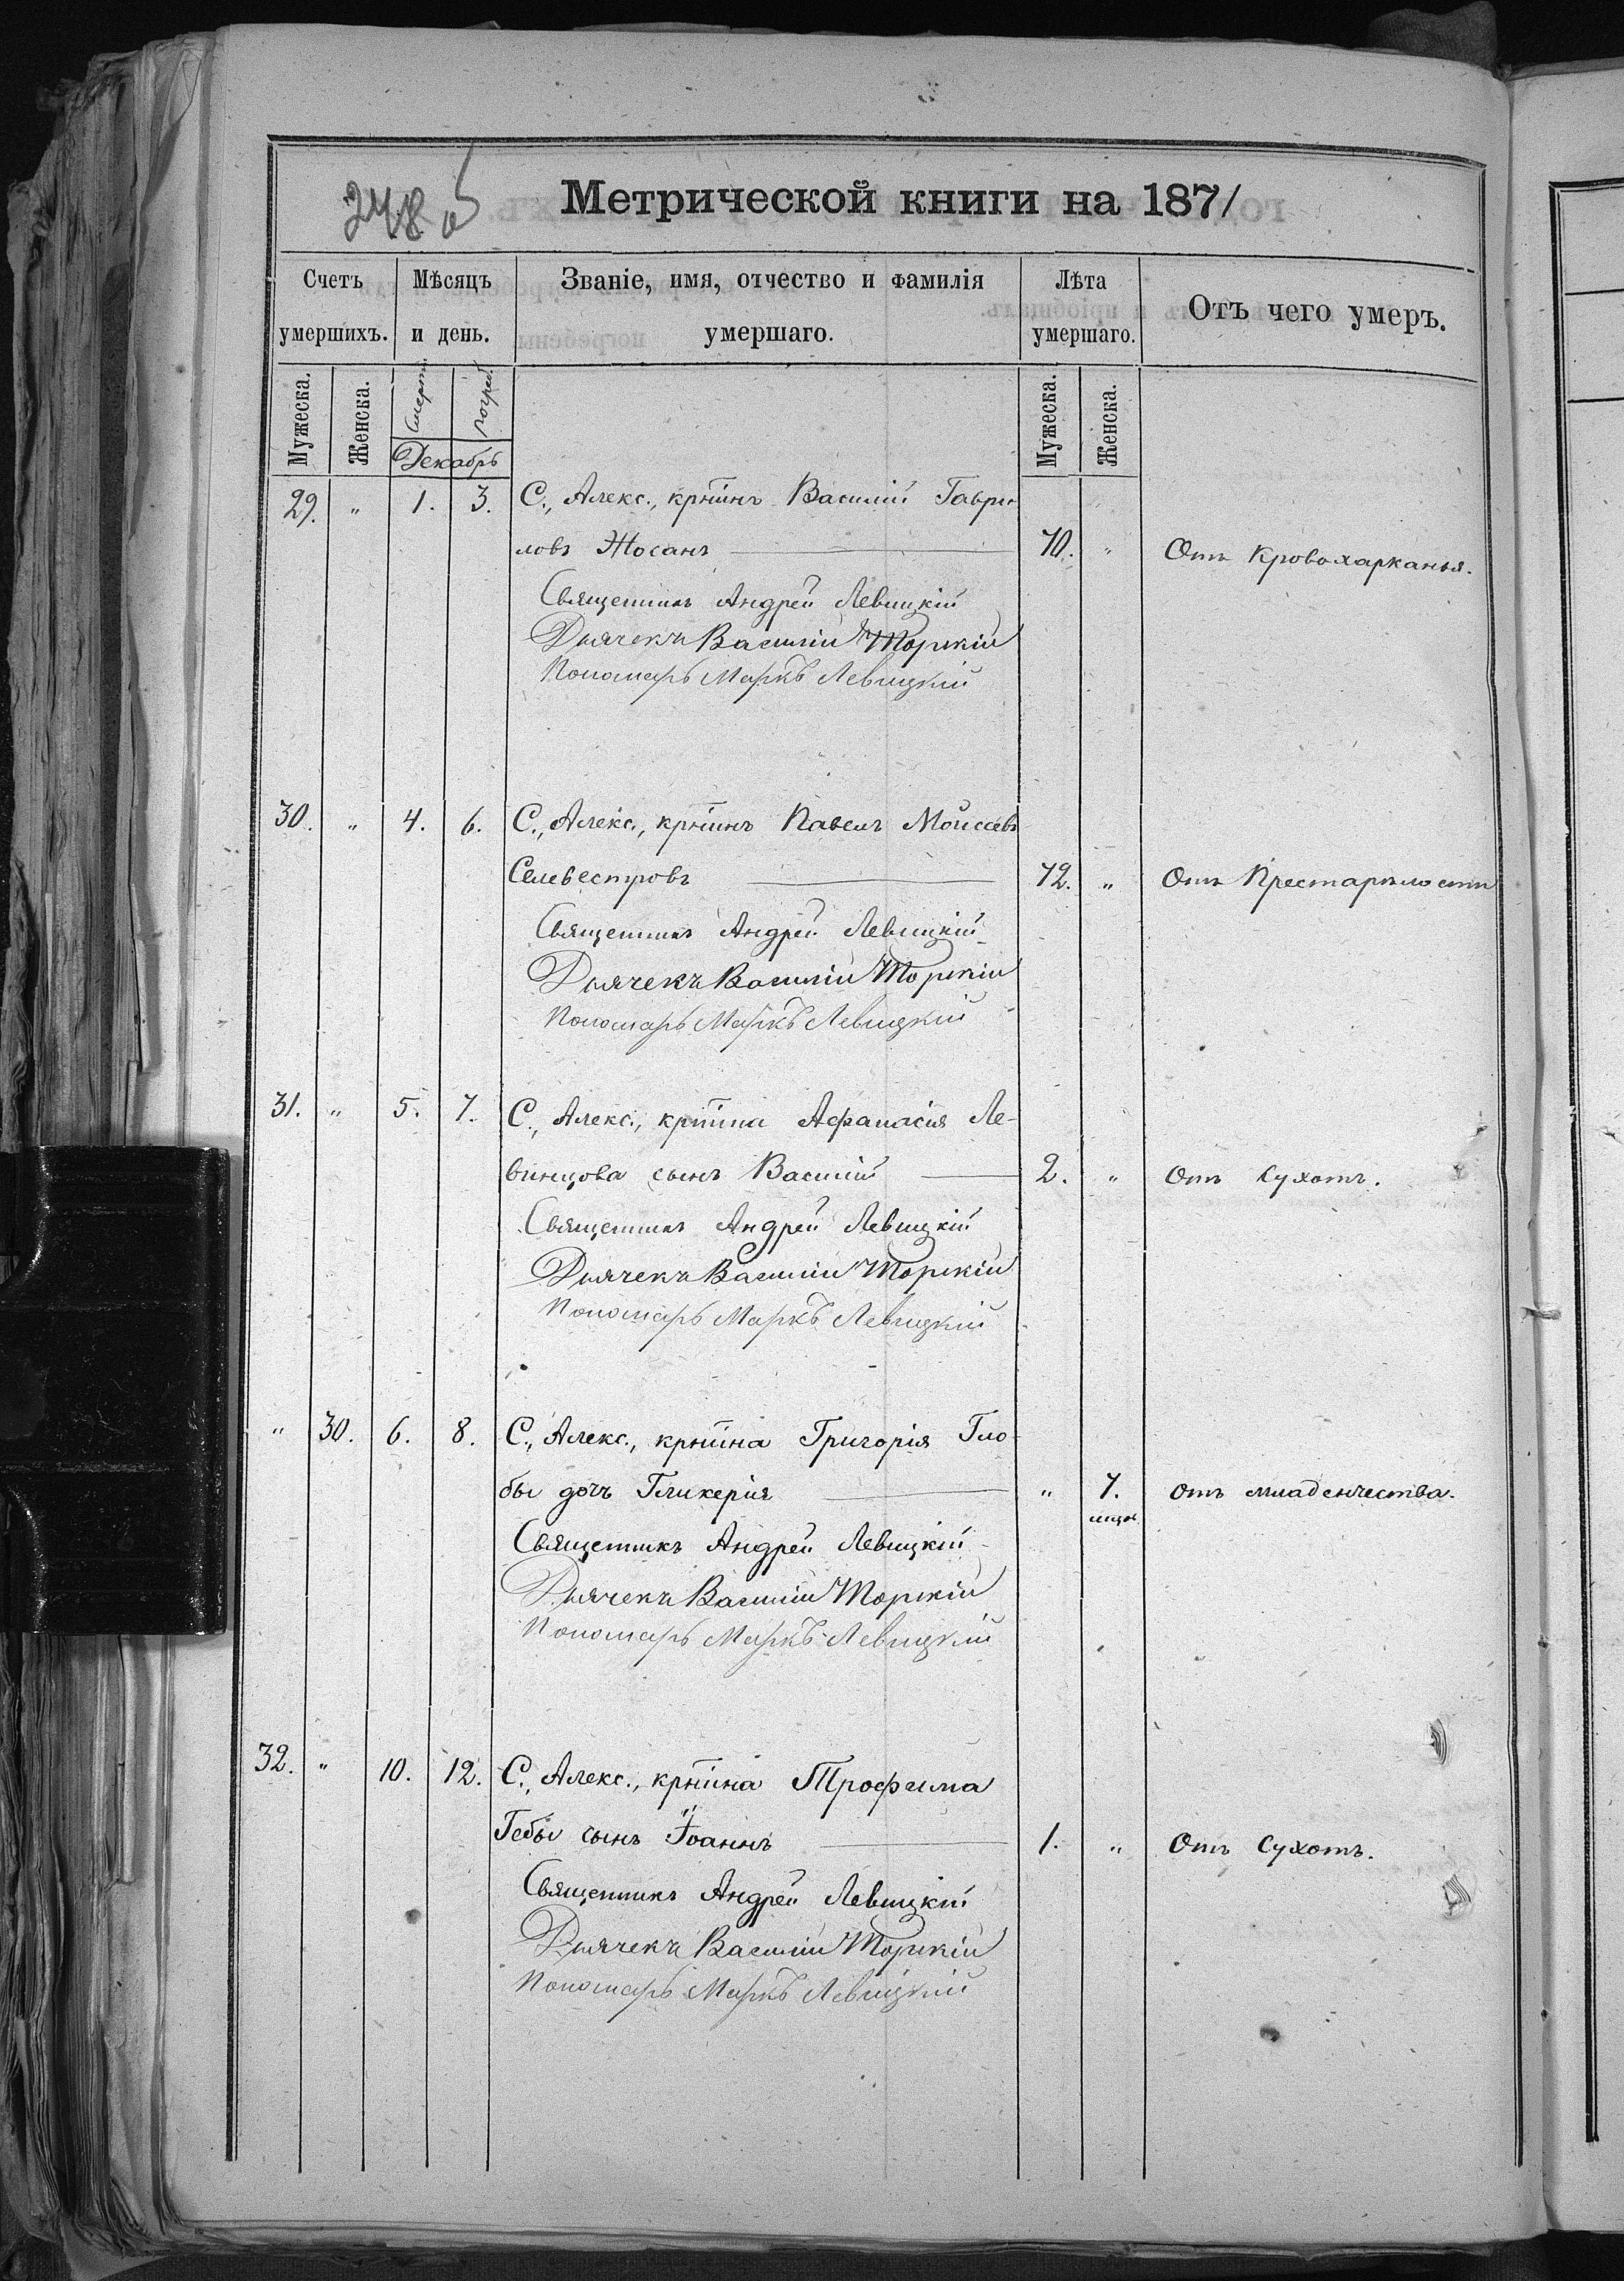 248 об
Метрической книги на 1871
Счетъ умершихъ. Мѣсяцъ и день. Званіе, имя, отчество и фамилія умершаго. Лѣта умершаго. Отъ чего умеръ.
Мужеска. Женска. Смерти погреб. Мужеска. Женска.
Декабрь
29. " 1. 3. С., Алекс., крт̃інъ Василій Гаври-
ловъ Жосанъ 70. " Отъ Кровохарканья.
Священникъ Андрей Левицкій
Дьячекъ Василій Торскій
Пономарь Маркъ Левицкій
30. " 4. 6. С., Алекс., крт̃інъ Павелъ Мойсеевъ
Селевестровъ 72. " Отъ Престарѣлости
Священникъ Андрей Левицкій
Дьячекъ Василій Торскій
Пономарь Маркъ Левицкій
31. " 5. 7. С., Алекс., крт̃іна Афанасія Ле-
винцова сынъ Василій 2. " Отъ Сухотъ.
Священникъ Андрей Левицкій
Дьячекъ Василій Торскій
Пономарь Маркъ Левицкій
" 30. 6. 8. С., Алекс., крт̃іна Григорія Гло-
бы дочь Гликерия " 7. отъ младенчества.
Священникъ Андрей Левицкій
Дьячекъ Василій Торскій
Пономарь Маркъ Левицкій
32. " 10. 12. С., Алекс., крт̃іна Трофима
Гебы сынъ Іоаннъ 1. " Отъ Сухотъ.
Священникъ Андрей Левицкій
Дьячекъ Василій Торскій
Пономарь Маркъ Левицкій